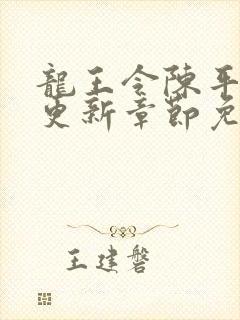 龍王令陳平
更新章節免
王建磐